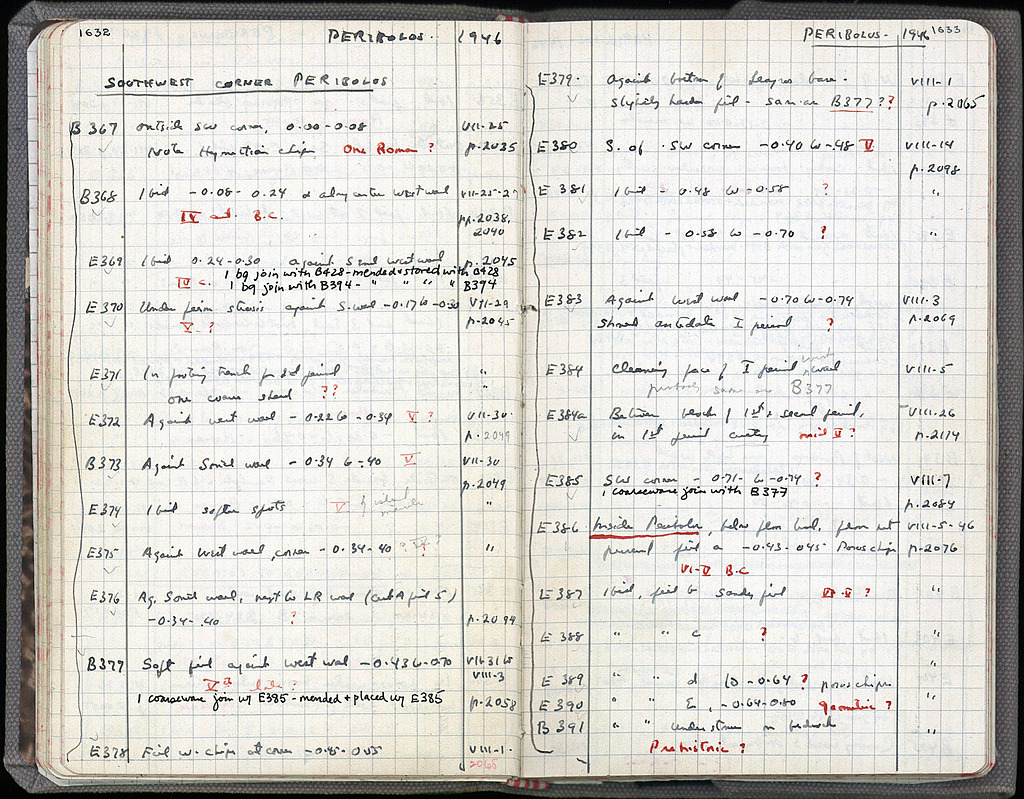 1632 PERIBOLOS. 1946
SOUTHWEST CORNER PERIBOLOS
B 367 outside SW corner, 0.00-0.08 VII-25
Note Hymettian chips, One Roman ? p.2035
B368 Ibid -0.08- 0.24 & along outer west wall VII-25-27
IV cent. B.C. pp.2038,
2040
E369 Ibid 0.24-0.30 against S end west wall p.2045
IV c. 1 bg join with B428-mended & stored with B428
1 bg join with B394- " " " " B394
E370 Under firm stosis against S. wall -0.17 to -0.30 VII-29
V-? p.2045
E371 In footing trench for 2d period "
one coarse sherd ?? "
E372 Against west wall -0.22 to -0.34 V ? VII-30
p.2049
B373 Against South wall -0.34 to -.40 V VII-30
p.2049
E374 Ibid softer spots V "
E375 Against West wall, corner -0.34-40 ? IV ? "
E376 Ag. South wall, next to LR wall
-0.34-.40 ? p.2094
B377 Soft fill against west wall -0.43 to -0.70 VII-31 to
VIII-3
V late ?
1 coarseware join w/ E385-mended + placed w/ E385 p.2058
E378 Fill w. chips at corner -0.45-0.55 VIII-1-
2065
PERIBOLOS- 1946 1633
E379. Against bottom of Leagros base. VIII-1
slightly harder fill - same as B377?? p.2065
E380 S. of SW corner -0.40 to -.48 V VIII-14
p.2098
E381 Ibid - 0.48 to -0.58 ? "
E382 Ibid - 0.58 to -0.70 ? "
E383 Against west wall -0.70 to -0.74 VIII-3
should antedate I period ? p.2069
E384 Cleaning face of I period west wall VIII-5
probably same as B377
E384a Between blocks of 1st & second period, VIII-26
in 1st period cutting mid V ? p.2114
E385 SW corner - 0.71- to -0.74 ? VIII-7
1 coarseware join with B377
p.2084
E386 Inside Peribolos, below floor level, VIII-5-46
fill a -0.43-045 Poros chips p.2076
VI-V B.C
E387 Ibid, fill b sandy fill VI-V ? "
E 388 " " c ? "
"
E 389 " " d to -0.64 ? poros chips
E390 " " E, -0.64-0.80 geometric ? "
B 391 " " under stratum on bedrock "
Prehistoric ?